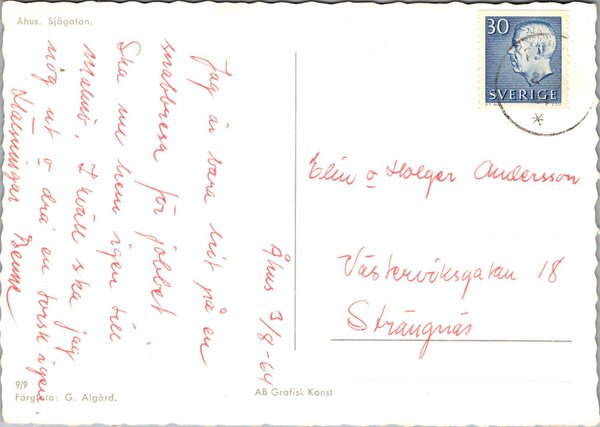 Åhus. Sjögatan.
30
SVERIGE
Åhus 3/8-64
Jag är bara hit på en
snabbresa för jobbet
Ska nu hem igen till
Malmö. I kväll ska jag
nog ut o dra en torsk igen.
Hälsningar Benne
Elin o Holger Andersson
Västerviksgatan 18
Strängnäs
9/9
Färgfoto: G. Algård.
AB Grafisk Konst